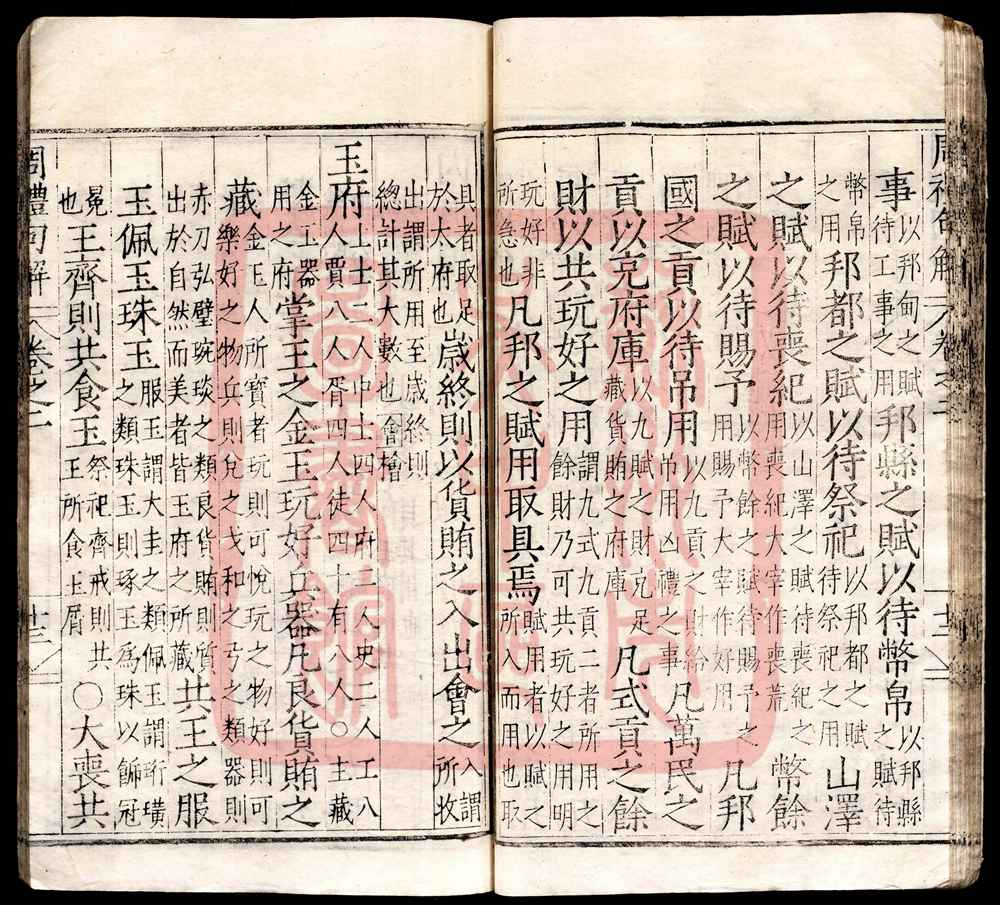 周禮句解 卷之二 十二
事以邦甸之賦待工事之用邦縣之賦以待幣帛以邦縣之賦待
幣帛之用邦都之賦以待祭祀以邦都之賦待祭祀之用山澤
之賦以待喪紀以山澤之賦待喪紀之用喪紀大宰作喪荒幣餘
之賦以待賜予以幣餘之賦待賜予之用賜予大宰作好用凡邦
國之貢以待吊用以九貢之財給吊用凶禮之事凡萬民之
貢以充府庫以九賦之財充足藏貨賄之府庫凡式貢之餘
財以共玩好之用謂九式九貢二者所用之餘財乃可共玩好之用明
玩好非所急也凡邦之賦用取具焉賦用者以賦之所入而用也取
具者取足於太府也歲終則以貨賄之入出會之入謂所收
出謂所用至歲終則總計其大數也會檜
玉府上士二人中士四人府二人史二人工八人賈八人胥四人徒四十有八人○主藏
金玉器用之府掌王之金玉玩好兵器凡良貨賄之
藏金玉人所寶者玩則可悅玩之物好則可樂好之物兵則兌之戈和之弓之類器則
赤刀弘璧琬琰之類良貨賄則質出於自然而美者皆玉府之所藏共王之服
玉佩玉珠玉服玉謂大圭之類佩玉謂珩璜之類珠玉則琢玉爲珠以飾冠
冕也王齊則共食玉祭祀齊戒則共王所食玉屑○大喪共
周禮句解 卷之二 十三